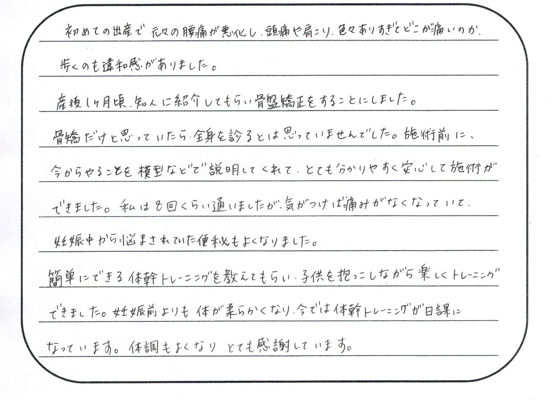 初めての出産で元々の腰痛が悪化し、頭痛や肩こり、色々ありすぎてどこが痛いのか、
歩くのも違和感がありました。
産後1ヶ月頃、知人に紹介してもらい骨盤矯正をすることにしました。
骨矯だけと思っていたら、全身を診るとは思っていませんでした。施術前に、
今からやることを模型などで説明してくれて、とても分かりやすく安心して施術が
できました。私は8回くらい通いましたが、気がつけば痛みがなくなっていて、
妊娠中から悩まされていた便秘もよくなりました。
簡単にできる体幹トレーニングを教えてもらい、子供を抱っこしながら楽しくトレーニング
できました。妊娠前よりも体が柔らかくなり、今では体幹トレーニングが日課に
なっています。体調もよくなりとても感謝しています。